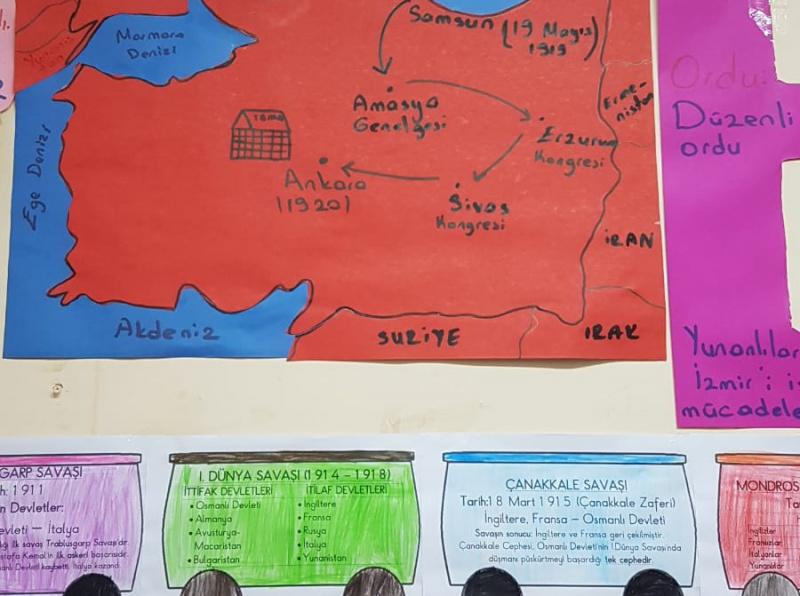 Marmara
Denizi
Samsun (19 Mayıs
1919)
Amasya
Genelgesi
Erme-
nistan
Erzurum
Kongresi
TBMM
Ankara
(1920)
Sivas
Kongresi
Ege Denizi
İRAN
Akdeniz
SURİYE
IRAK
Ordu:
Düzenli
ordu
Yunanlılar
İzmir'i iş
mücadele
GARP SAVAŞI
h: 1911
n Devletler:
evleti – İtalya
ği ilk savaş Trablusgarp Savaşı'dır.
stafa Kemal'in ilk askeri başarısıdır.
anlı Devleti kaybetti, İtalya kazandı.
I. DÜNYA SAVAŞI (1914 – 1918)
İTTİFAK DEVLETLERİ
• Osmanlı Devleti
• Almanya
• Avusturya-
Macaristan
• Bulgaristan
İTİLAF DEVLETLERİ
• İngiltere
• Fransa
• Rusya
• İtalya
• Yunanistan
ÇANAKKALE SAVAŞI
Tarih:18 Mart 1915 (Çanakkale Zaferi)
İngiltere, Fransa – Osmanlı Devleti
Savaşın sonucu: İngiltere ve Fransa geri çekilmiştir.
Çanakkale Cephesi, Osmanlı Devleti'nin I.Dünya Savaşı'nda
düşmanı püskürtmeyi başardığı tek cephedir.
MONDROS
Ta
İngilizler
Fransızlar
İtalyanlar
Yunanlılar